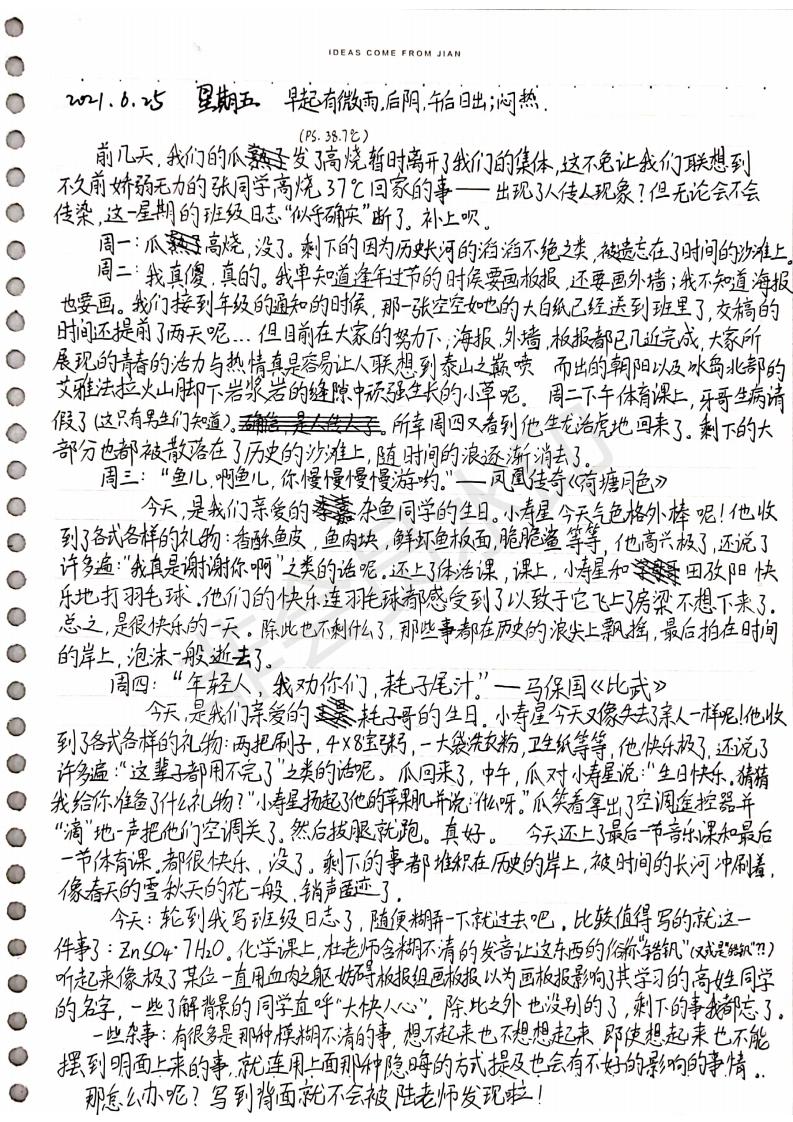 IDEAS COME FROM JIAN
2021.6.25 星期五 早起有微雨,后阴,午后日出;闷热.
(PS. 38.7℃)
前几天,我们的瓜发了高烧暂时离开了我们的集体,这不免让我们联想到
不久前娇弱无力的张同学高烧37℃回家的事——出现了人传人现象?但无论会不会
传染,这一星期的班级日志“似乎确实”断了。补上呗。
周一:瓜高烧,没了。剩下的因为历史长河的滔滔不绝之类,被遗忘在了时间的沙滩上。
周二:我真傻,真的。我单知道逢年过节的时候要画板报,还要画外墙;我不知道海报
也要画。我们接到年级的通知的时候,那一张空空如也的大白纸已经送到班里了,交稿的
时间还提前了两天呢...但目前在大家的努力下,海报,外墙,板报都已几近完成,大家所
展现的青春的活力与热情真是容易让人联想到泰山之巅喷 而出的朝阳以及冰岛北部的
艾雅法拉火山脚下岩浆岩的缝隙中顽强生长的小草呢。 周二下午体育课上,牙哥生病请
假了(这只有男生们知道)。所幸周四又看到他生龙活虎地回来了。剩下的大
部分也都被散落在了历史的沙滩上,随时间的浪逐渐消去了。
周三:“鱼儿,啊鱼儿,你慢慢慢慢游哟。”——凤凰传奇《荷塘月色》
今天,是我们亲爱的杂鱼同学的生日。小寿星今天气色格外棒呢!他收
到了各式各样的礼物:香酥鱼皮,鱼肉块,鲜虾鱼板面,脆脆鲨等等,他高兴极了,还说了
许多遍:“我真是谢谢你啊”之类的话呢。还上了体活课,课上,小寿星和田孜阳快
乐地打羽毛球。他们的快乐连羽毛球都感受到了以致于它飞上了房梁不想下来了。
总之,是很快乐的一天。除此也不剩什么了,那些事都在历史的浪尖上飘摇,最后拍在时间
的岸上,泡沫一般逝去了。
周四:“年轻人,我劝你们,耗子尾汁。”——马保国《比武》
今天,是我们亲爱的耗子哥的生日。小寿星今天又像失去了亲人一样呢!他收
到了各式各样的礼物:两把刷子,4×8宝粥,一大袋洗衣粉,卫生纸等等,他快乐极了,还说了
许多遍:“这辈子都用不完了”之类的话呢。瓜回来了,中午,瓜对小寿星说:“生日快乐,猜猜
我给你准备了什么礼物?”小寿星扬起了他的苹果肌并说:“什么呀。”瓜笑着拿出了空调遥控器并
“滴”地一声把他们空调关了。然后拔腿就跑。真好。 今天还上了最后一节音乐课和最后
一节体育课。都很快乐,没了。剩下的事都堆积在历史的岸上,被时间的长河冲刷着,
像春天的雪秋天的花一般,销声匿迹了。
今天:轮到我写班级日志了,随便糊弄一下就过去吧。比较值得写的就这一
件事了:ZnSO4·7H2O。化学课上,杜老师含糊不清的发音让这东西的俗称“锆钒”(又或是“皓矾”?!)
听起来像极了某位一直用血肉之躯妨碍板报组画板报以为画板报影响了其学习的高姓同学
的名字,一些了解背景的同学直呼“大快人心”。除此之外也没别的了,剩下的事我都忘了。
一些杂事:有很多是那种模糊不清的事,想不起来也不想想起来,即使想起来也不能
摆到明面上来的事,就连用上面那种隐晦的方式提及也会有不好的影响的事情。.
那怎么办呢?写到背面就不会被陆老师发现啦!